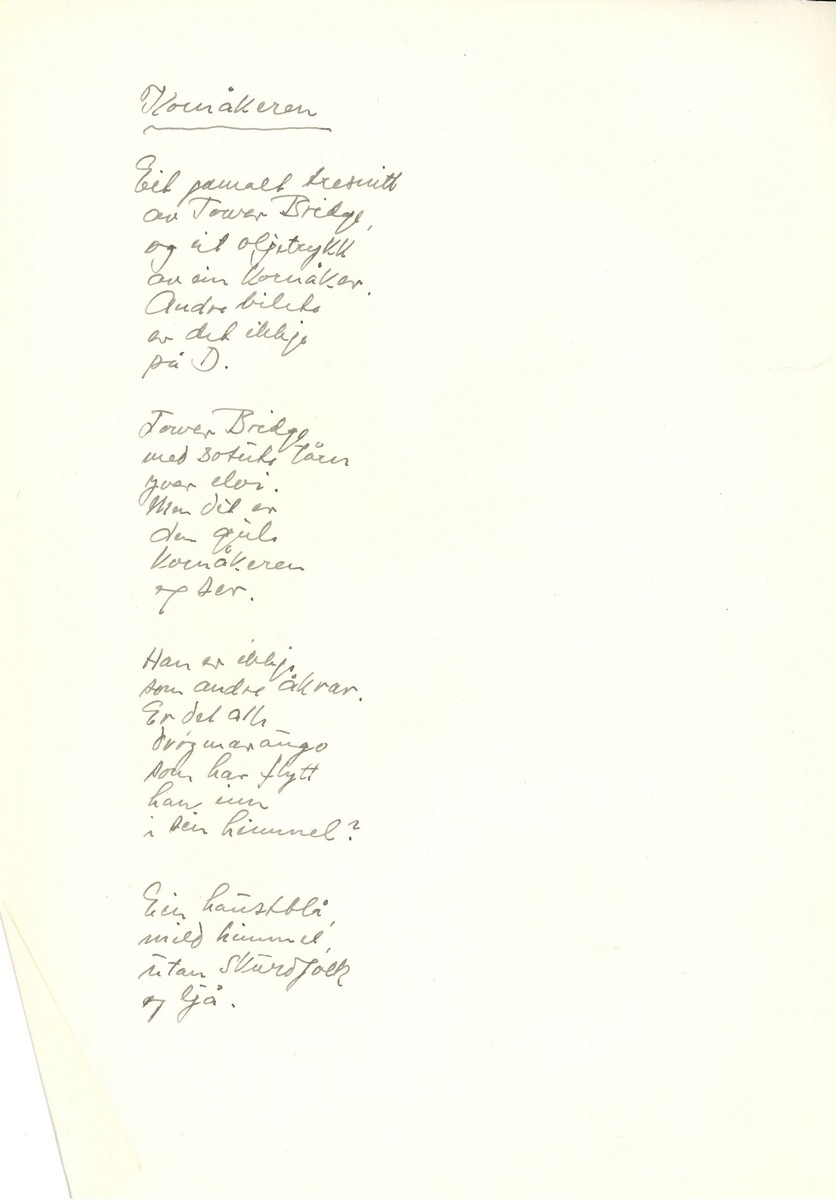 Kornåkeren
Eit gamalt tresnitt
av Tower Bridge,
og eit oljetrykk
av ein kornåker.
Andre bilete
er det ikkje
på D.
Tower Bridge
med sotute tårn
yver elvi.
Men det er
den gule
kornåkeren
eg ser.
Han er ikkje
som andre åkrar.
Er det alle
som har flytt
han inn
i sin himmel?
Ein haustblå,
mild himmel,
utan skurdfolk
og ljå.